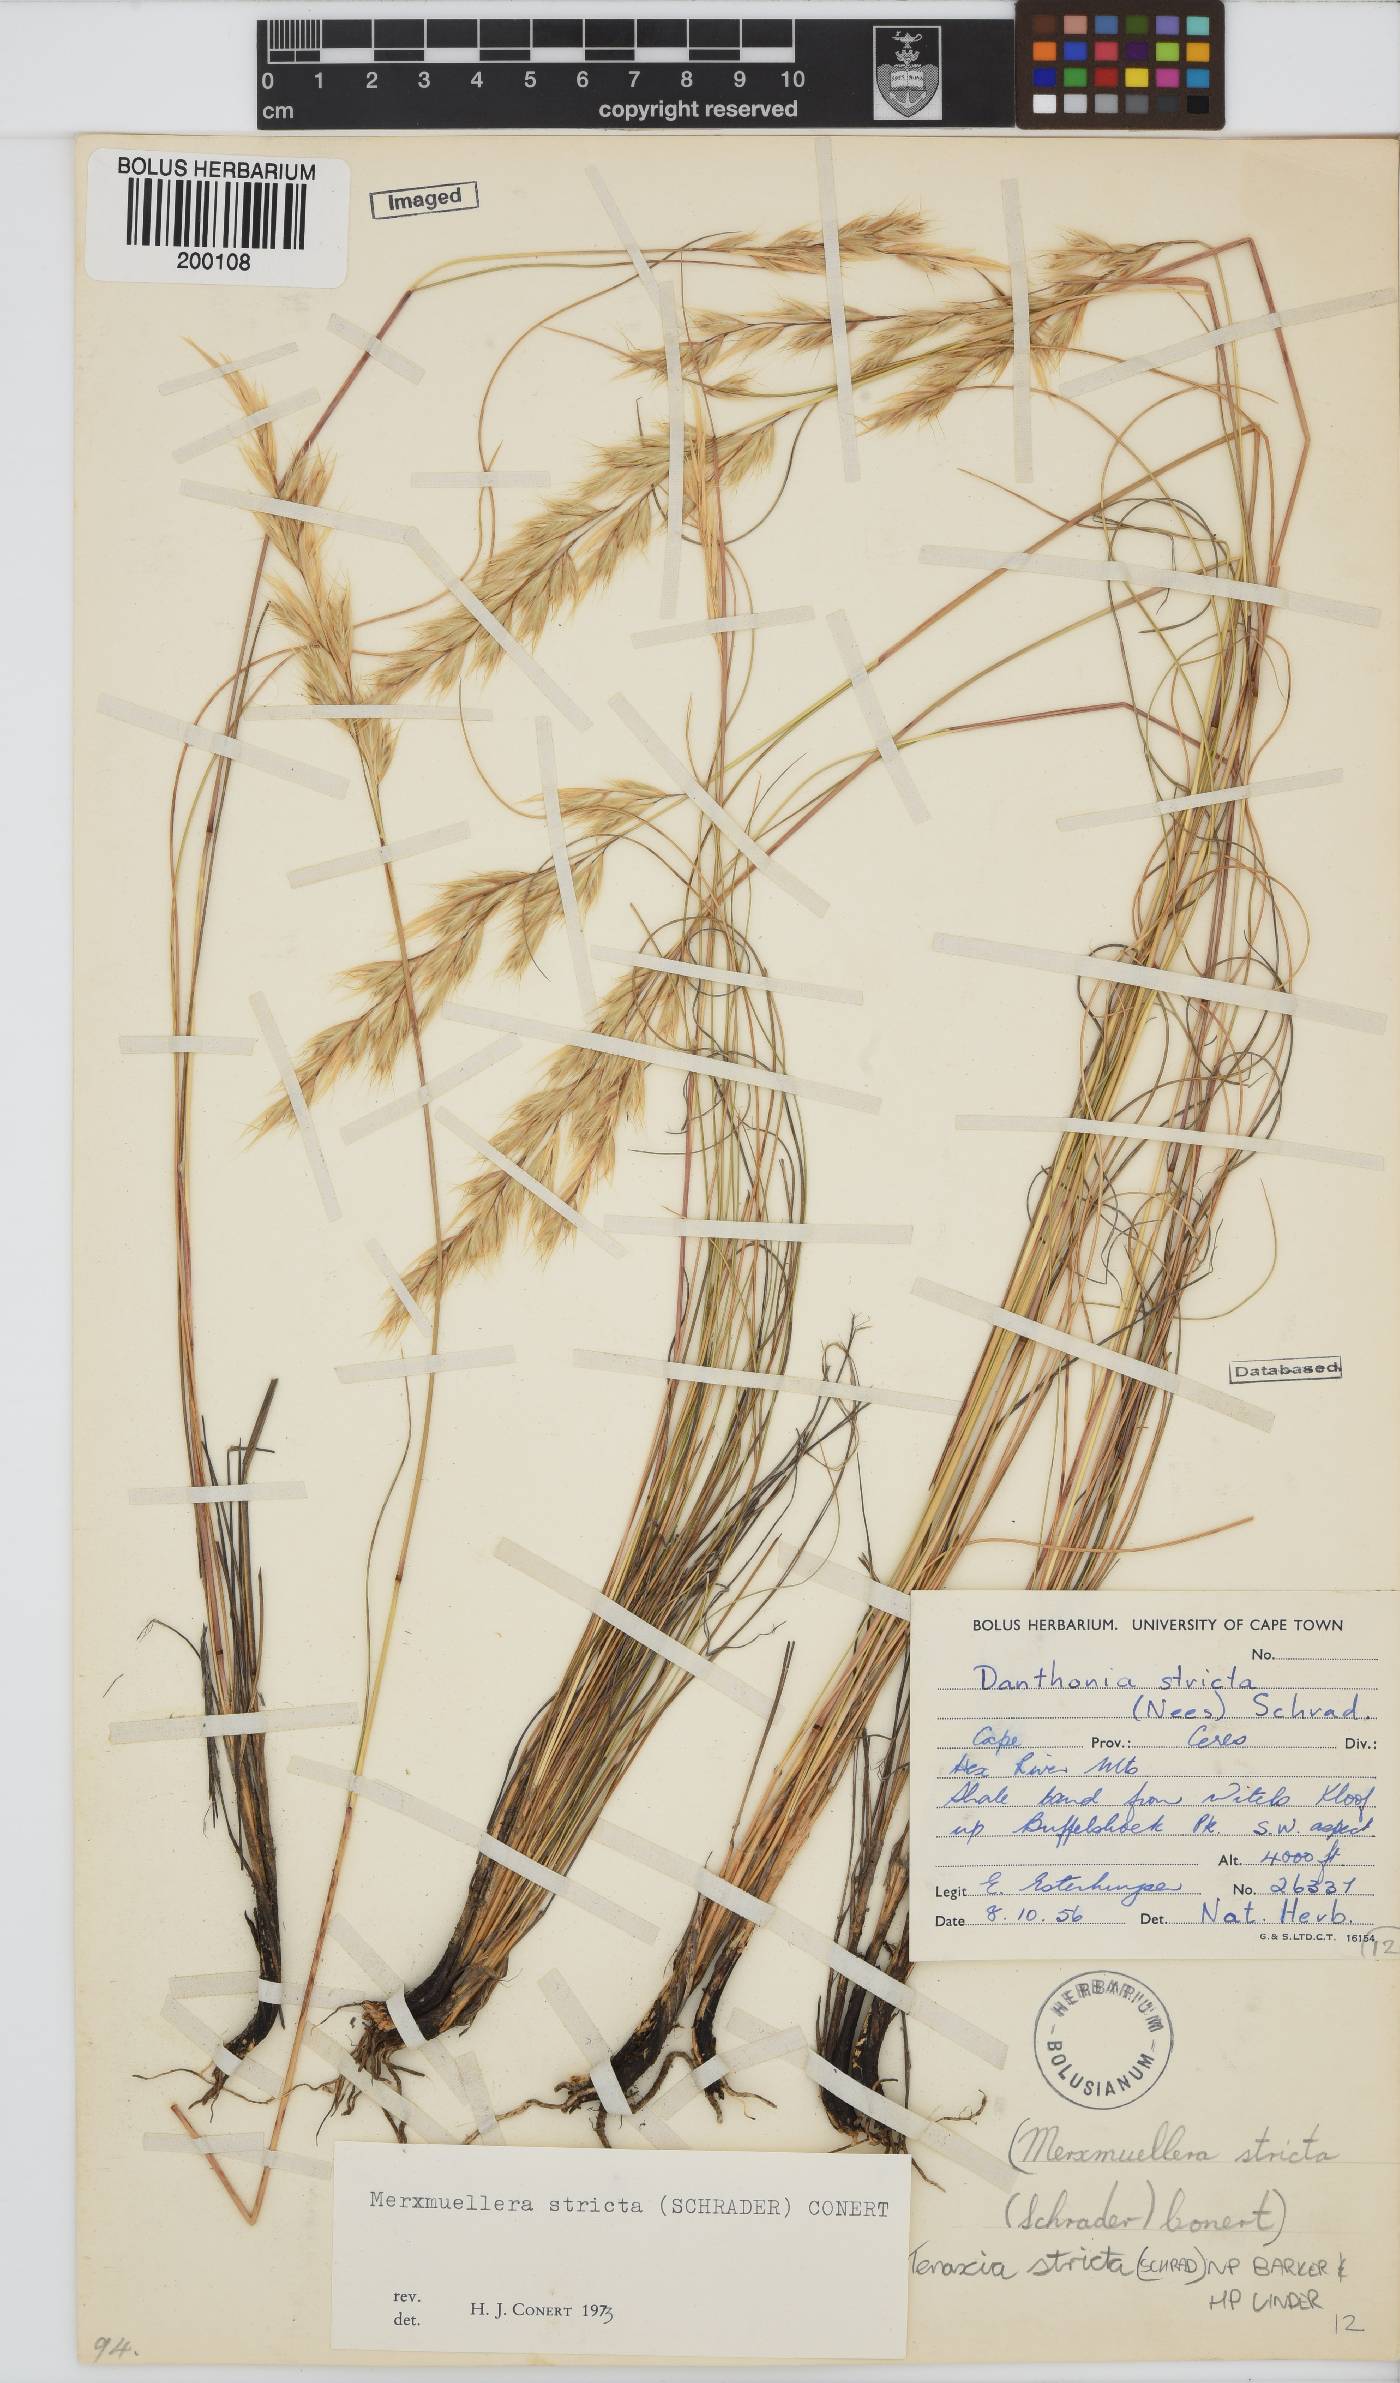 0 1 2 3 4 5 6 7 8 9 10
cm
copyright reserved
BOLUS HERBARIUM
200108
Imaged
Databased
BOLUS HERBARIUM. UNIVERSITY OF CAPE TOWN
No.
Danthonia stricta
(Nees) Schrad.
Cape Prov.: Ceres Div.:
Hex River Mts
Shale band from Vitels Kloof
up Buffelshoek Pk. S.W. aspect
Alt. 4000 ft.
Legit E. Esterhuysen No. 26331
Date 8.10.56 Det. Nat. Herb.
G. & S. LTD. C.T. 16154
HERBARIUM
BOLUSIANUM
(Merxmuellera stricta
(Schrader) Conert)
Tenaxia stricta (SCHRAD) NP BARKER &
HP LINDER
12
Merxmuellera stricta (SCHRADER) CONERT
rev.
det. H. J. CONERT 1973
94.